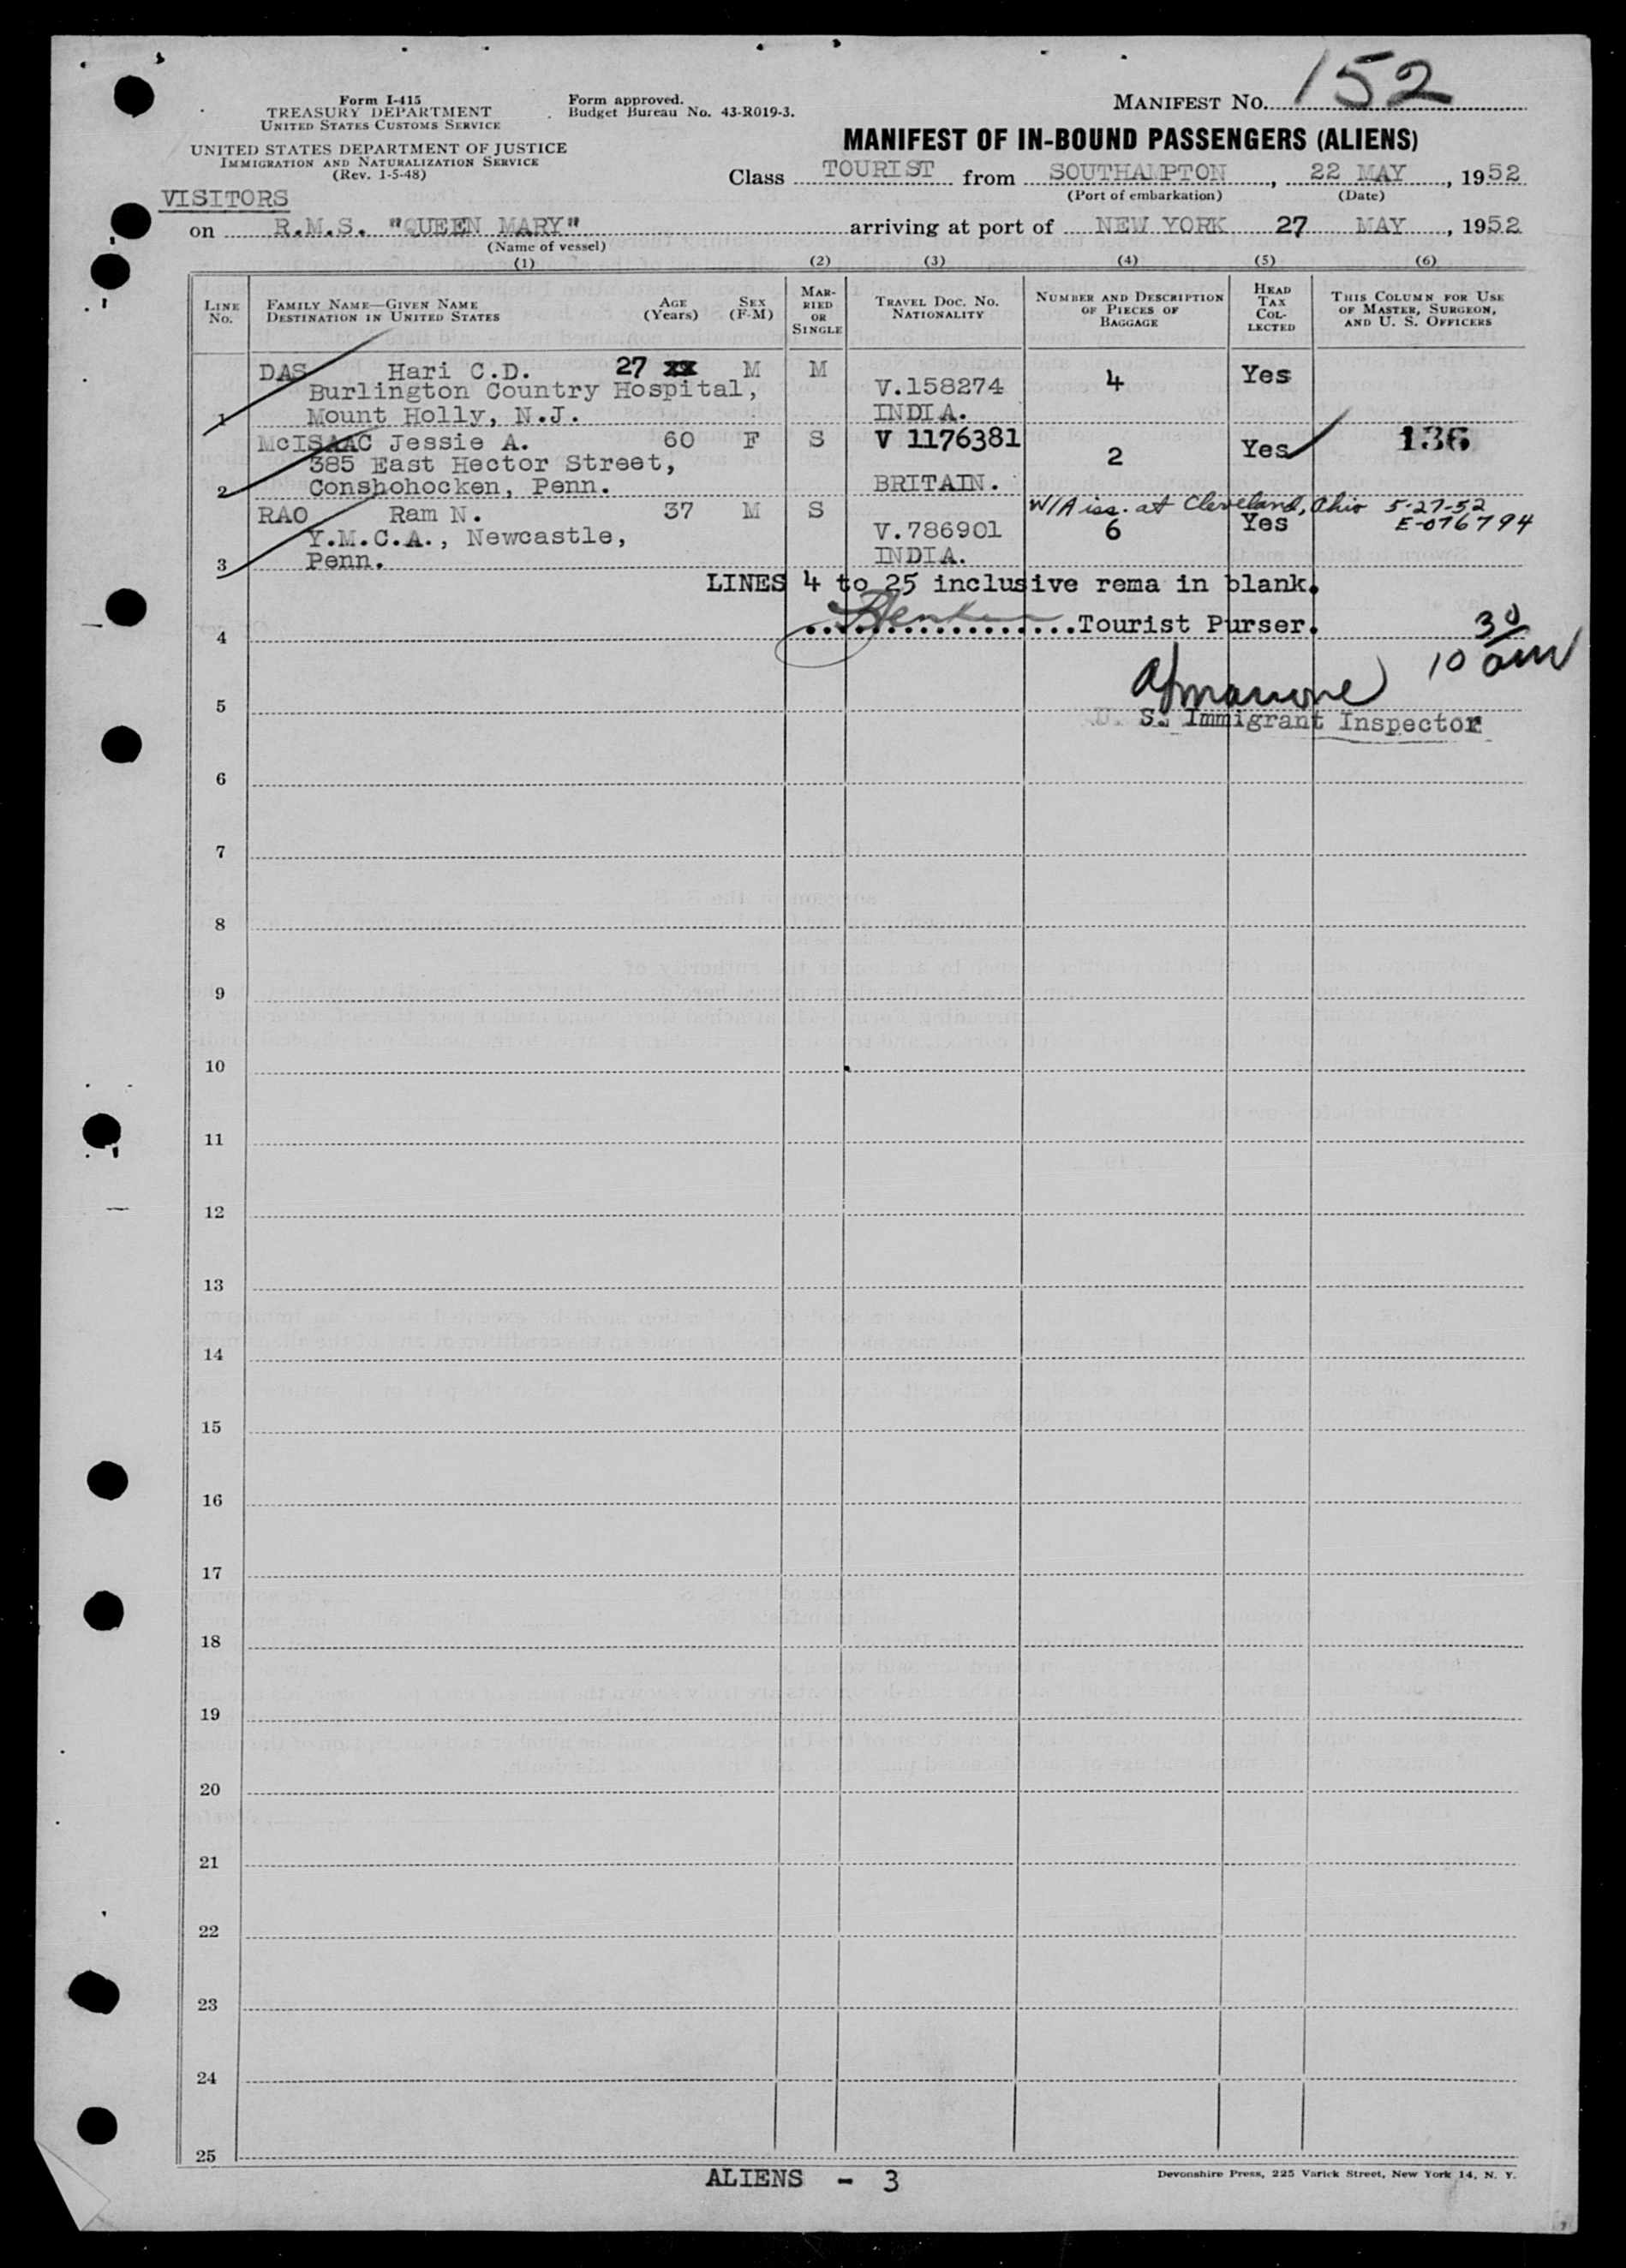 152
Form I-415
TREASURY DEPARTMENT
UNITED STATES CUSTOMS SERVICE
Form approved.
Budget Bureau No. 43-R019-3.
MANIFEST NO.
UNITED STATES DEPARTMENT OF JUSTICE
IMMIGRATION AND NATURALIZATION SERVICE
(Rev. 1-5-48)
MANIFEST OF IN-BOUND PASSENGERS (ALIENS)
Class TOURIST from SOUTHAMPTON, 22 MAY, 1952
(Port of embarkation) (Date)
VISITORS
on R.M.S. "QUEEN MARY" arriving at port of NEW YORK 27 MAY, 1952
(Name of vessel)
(1) (2) (3) (4) (5) (6)
LINE No. FAMILY NAME—GIVEN NAME DESTINATION IN UNITED STATES AGE (Years) SEX (F-M) MARRIED OR SINGLE TRAVEL DOC. NO. NATIONALITY NUMBER AND DESCRIPTION OF PIECES OF BAGGAGE HEAD TAX COLLECTED THIS COLUMN FOR USE OF MASTER, SURGEON, AND U. S. OFFICERS
DAS Hari C.D. 27 xx M M
Burlington Country Hospital, V.158274 4 Yes
1 Mount Holly, N.J. INDIA.
McISAAC Jessie A. 60 F S V 1176381 Yes 136
385 East Hector Street, 2
2 Conshohocken, Penn. BRITAIN.
W/A iss. at Cleveland, Ohio 5-27-52
E-076794
RAO Ram N. 37 M S
Y.M.C.A., Newcastle, V.786901 6 Yes
3 Penn. INDIA.
LINES 4 to 25 inclusive rema in blank.
4 ................Tourist Purser.
10 30 am
5
U. S. Immigrant Inspector
6
7
8
9
10
11
12
13
14
15
16
17
18
19
20
21
22
23
24
25
ALIENS - 3
Devonshire Press, 225 Varick Street, New York 14, N. Y.